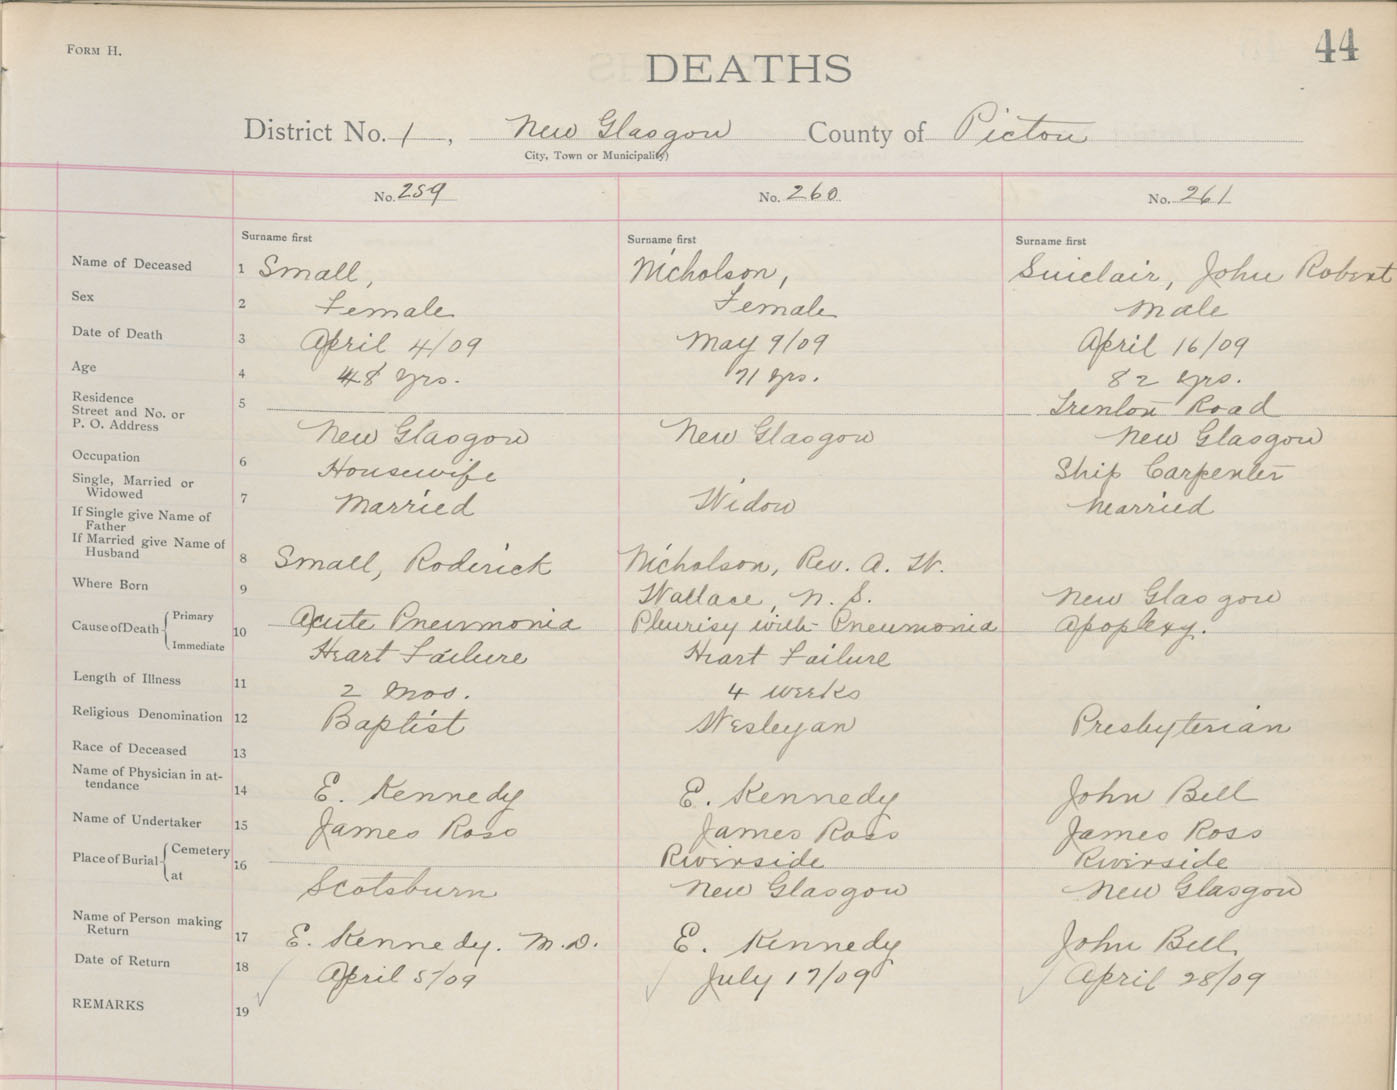 FORM H.
44
DEATHS
District No. 1, New Glasgow County of Pictou
City, Town or Municipality)
No. 259 No. 260 No. 261
Surname first Surname first Surname first
Name of Deceased 1 Small, Nicholson, Sinclair, John Robert
Sex 2 Female Female Male
Date of Death 3 April 4/09 May 9/09 April 16/09
Age 4 48 yrs. 71 yrs. 82 yrs.
Residence 5 Trenton Road
Street and No. or
P. O. Address New Glasgow New Glasgow New Glasgow
Occupation 6 Housewife Ship Carpenter
Single, Married or
Widowed 7 Married Widow Married
If Single give Name of
Father
If Married give Name of
Husband 8 Small, Roderick Nicholson, Rev. A. W.
Where Born 9 Wallace, N. S. New Glasgow
Cause of Death Primary 10 Acute Pneumonia Pleurisy with Pneumonia Apoplexy.
Immediate Heart Failure Heart Failure
Length of Illness 11 2 mos. 4 weeks
Religious Denomination 12 Baptist Wesleyan Presbyterian
Race of Deceased 13
Name of Physician in at-
tendance 14 E. Kennedy E. Kennedy John Bell
Name of Undertaker 15 James Ross James Ross James Ross
Place of Burial Cemetery 16 Riverside Riverside
at Scotsburn New Glasgow New Glasgow
Name of Person making
Return 17 E. Kennedy. M.D. E. Kennedy John Bell
Date of Return 18 April 5/09 July 17/09 April 28/09
REMARKS 19